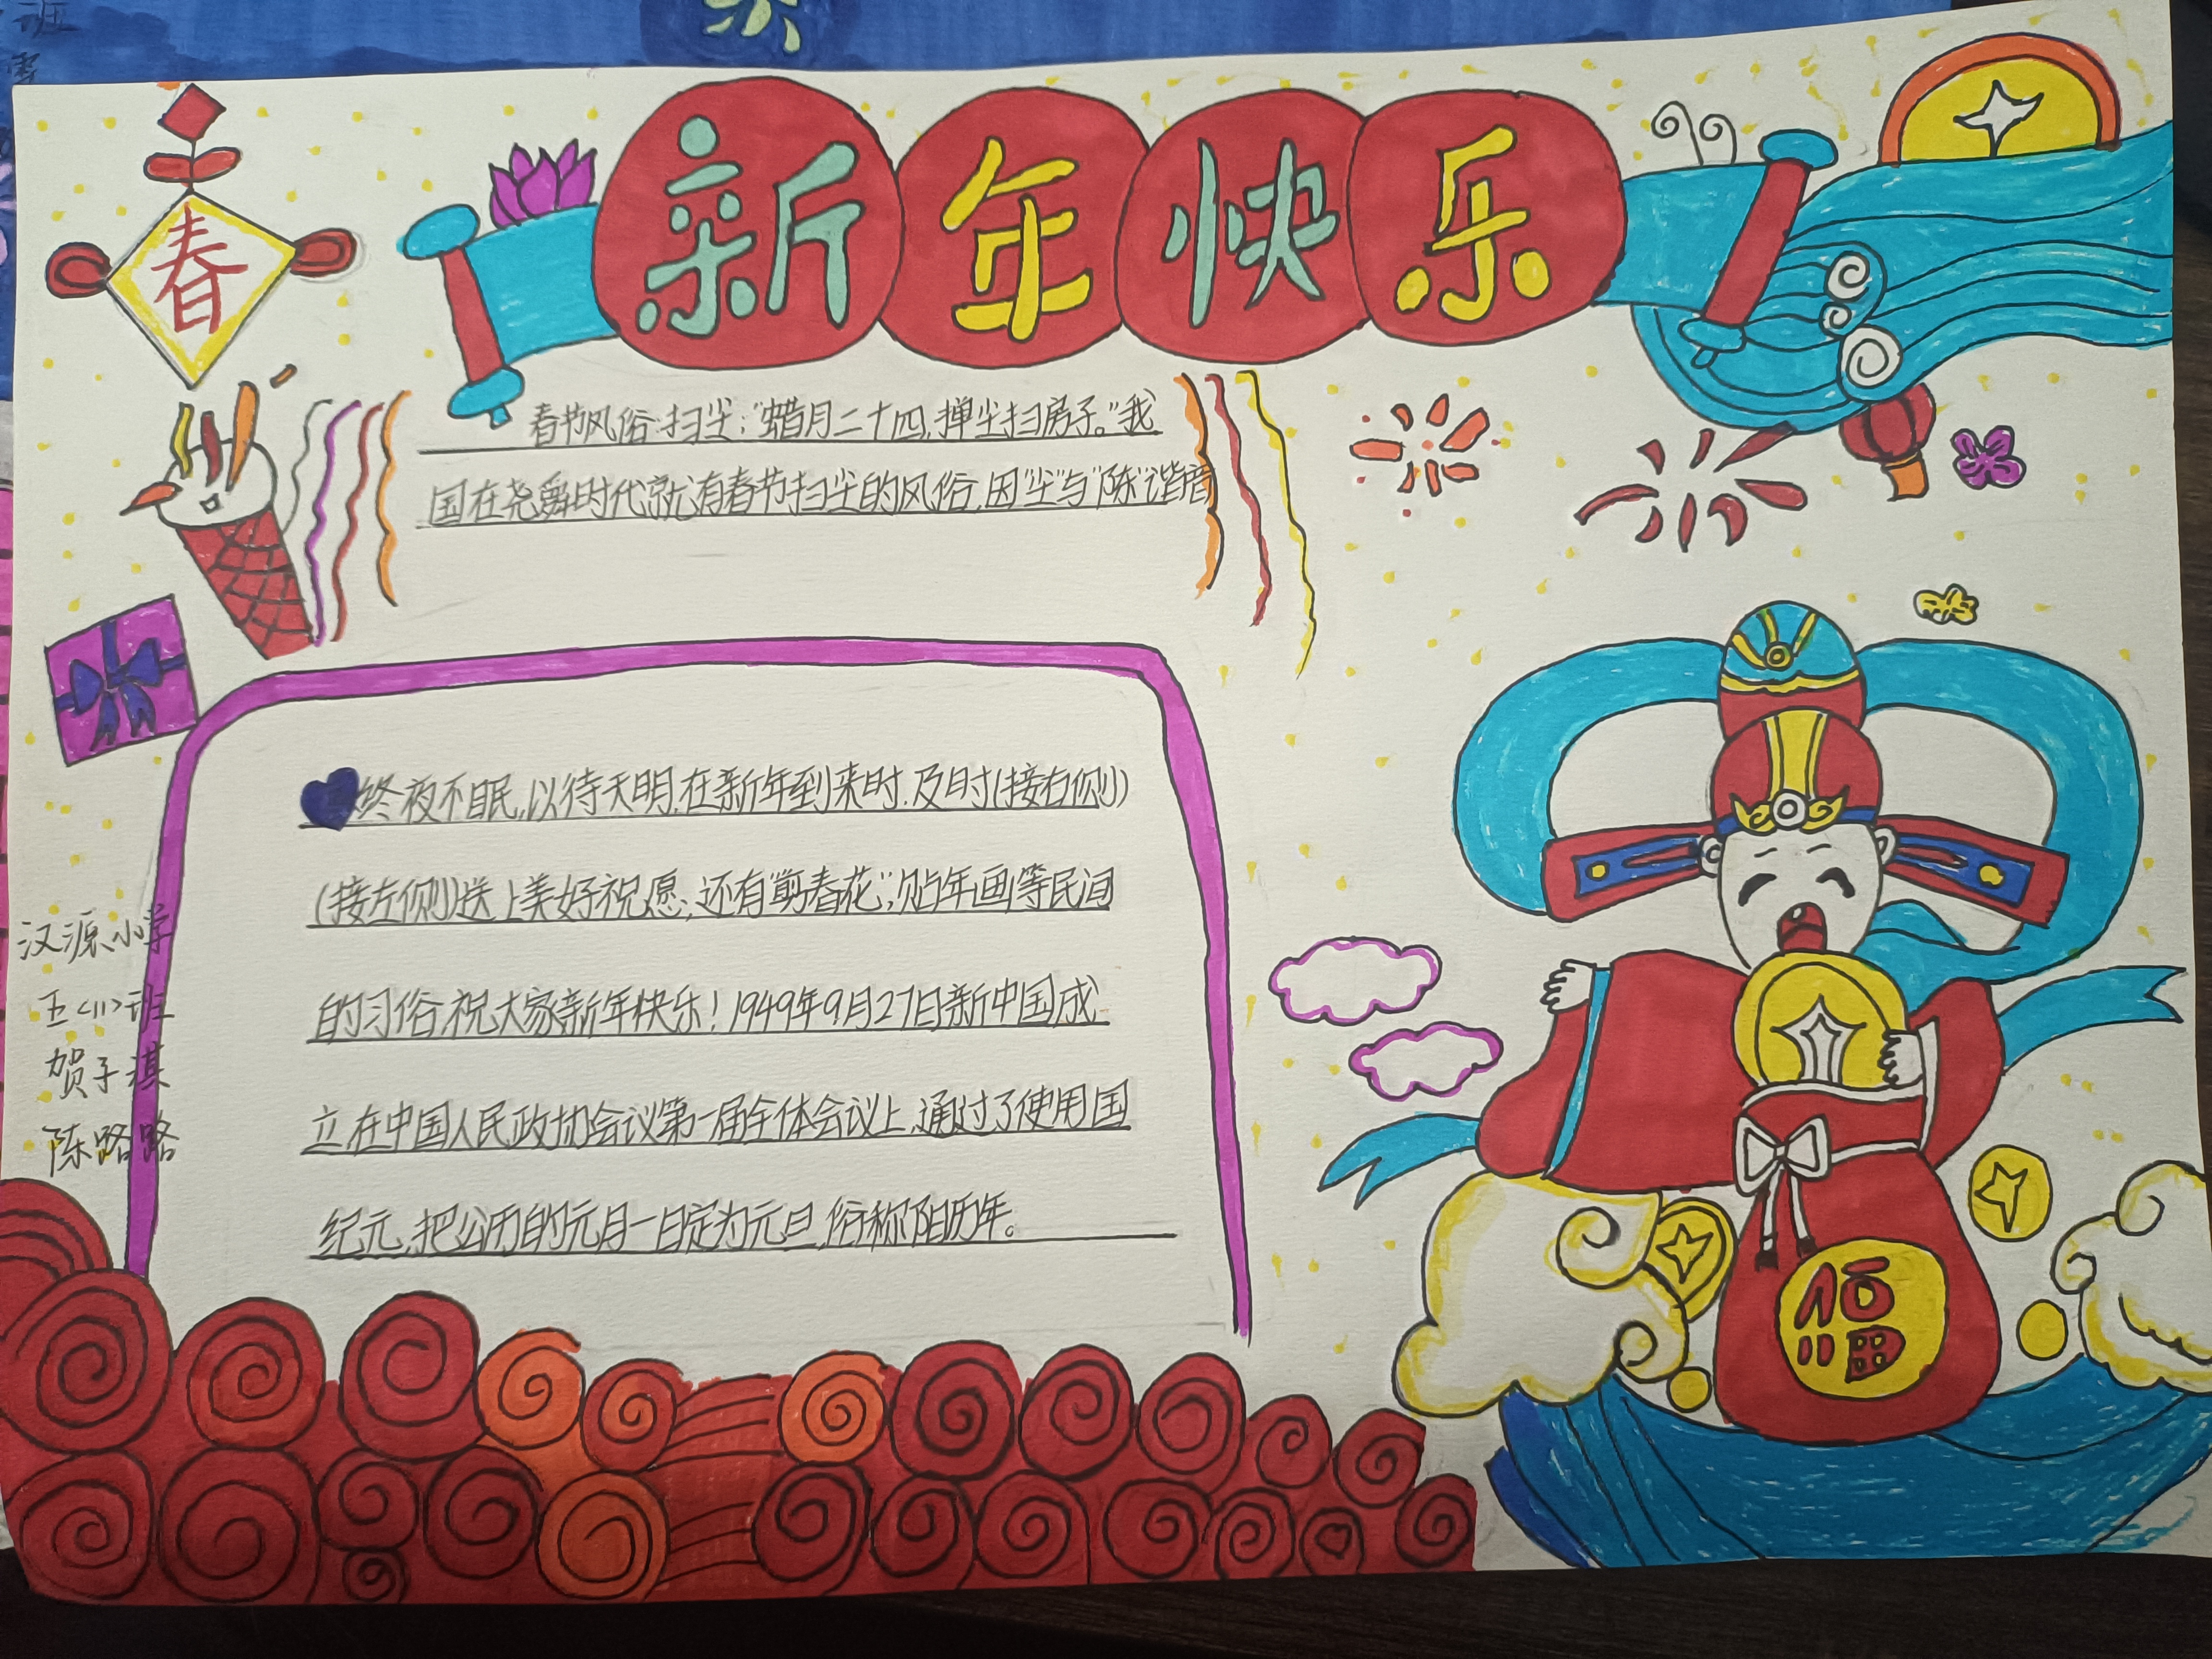 班
新年快乐
春
春节风俗:扫尘:"蜡月二十四,掸尘扫房子。"我
国在尧舜时代就有春节扫尘的风俗,因"尘"与"陈"谐音
终夜不眠,以待天明,在新年到来时,及时(接右侧)
(接左侧)送上美好祝愿,还有"剪春花",贴年画等民间
的习俗,祝大家新年快乐!1949年9月27日新中国成
立在中国人民政协会议第一届全体会议上,通过了使用国
纪元,把公历的元月一日定为元旦,俗称阳历年。
汉源小学
五<11>班
贺子淇
陈路路
福